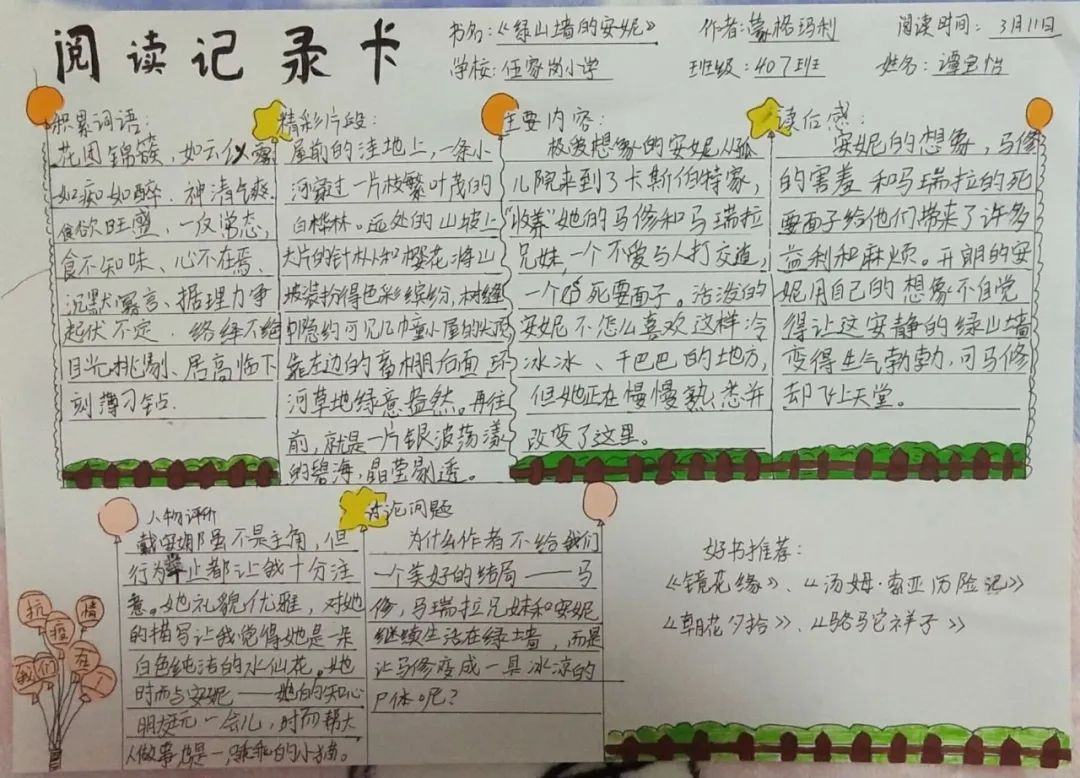 阅读记录卡
书名:《绿山墙的安妮》 作者:蒙格玛利 阅读时间: 3月11日
学校:伍家岗小学 班级:407班 姓名:谭宝怡
积累词语:
花团锦簇,如云似雾
如痴如醉.神清气爽
食欲旺盛,一反常态,
食不知味、心不在焉、
沉默寡言、据理力争
起伏不定.络绎不绝
目光挑剔、居高临下
刻薄刁钻.
精彩片段:
屋前的洼地上,一条小
河穿过一片枝繁叶茂的
白桦林。远处的山坡上
大片的针枞和樱花将山
坡装扮得色彩缤纷,树缝
中隐约可见几幢小屋的尖顶
靠左边的畜棚后面
河草地绿意盎然。再往
前,就是一片银波荡漾
的碧海,晶莹剔透。
主要内容:
极爱想像的安妮从孤
儿院来到了卡斯伯特家,
“收养”她的马修和马瑞拉
兄妹,一个不爱与人打交道,
一个死要面子。活泼的
安妮不怎么喜欢这样冷
冰冰、干巴巴的地方,
但她正在慢慢熟悉并
改变了这里。
读后感:
安妮的想像,马修
的害羞和马瑞拉的死
要面子给他们带来了许多
益利和麻烦。开朗的安
妮用自己的想像不自觉
得让这安静的绿山墙
变得生气勃勃,可马修
却飞上天堂。
人物评价
戴安娜虽不是主角,但
行为举止都让我十分注
意。她礼貌优雅,对她
的描写让我觉得她是一朵
白色纯洁的水仙花。她
时而与安妮——她的知心
朋友玩一会儿,时而帮大
人做事,是一只乖乖的小猫。
讨论问题
为什么作者不给我们
一个美好的结局——马
修,马瑞拉兄妹和安妮
继续生活在绿山墙,而是
让马修变成一具冰凉的
尸体呢?
好书推荐:
《镜花缘》、《汤姆·索亚历险记》
《朝花夕拾》、《骆驼祥子》
抗疫情
我们在